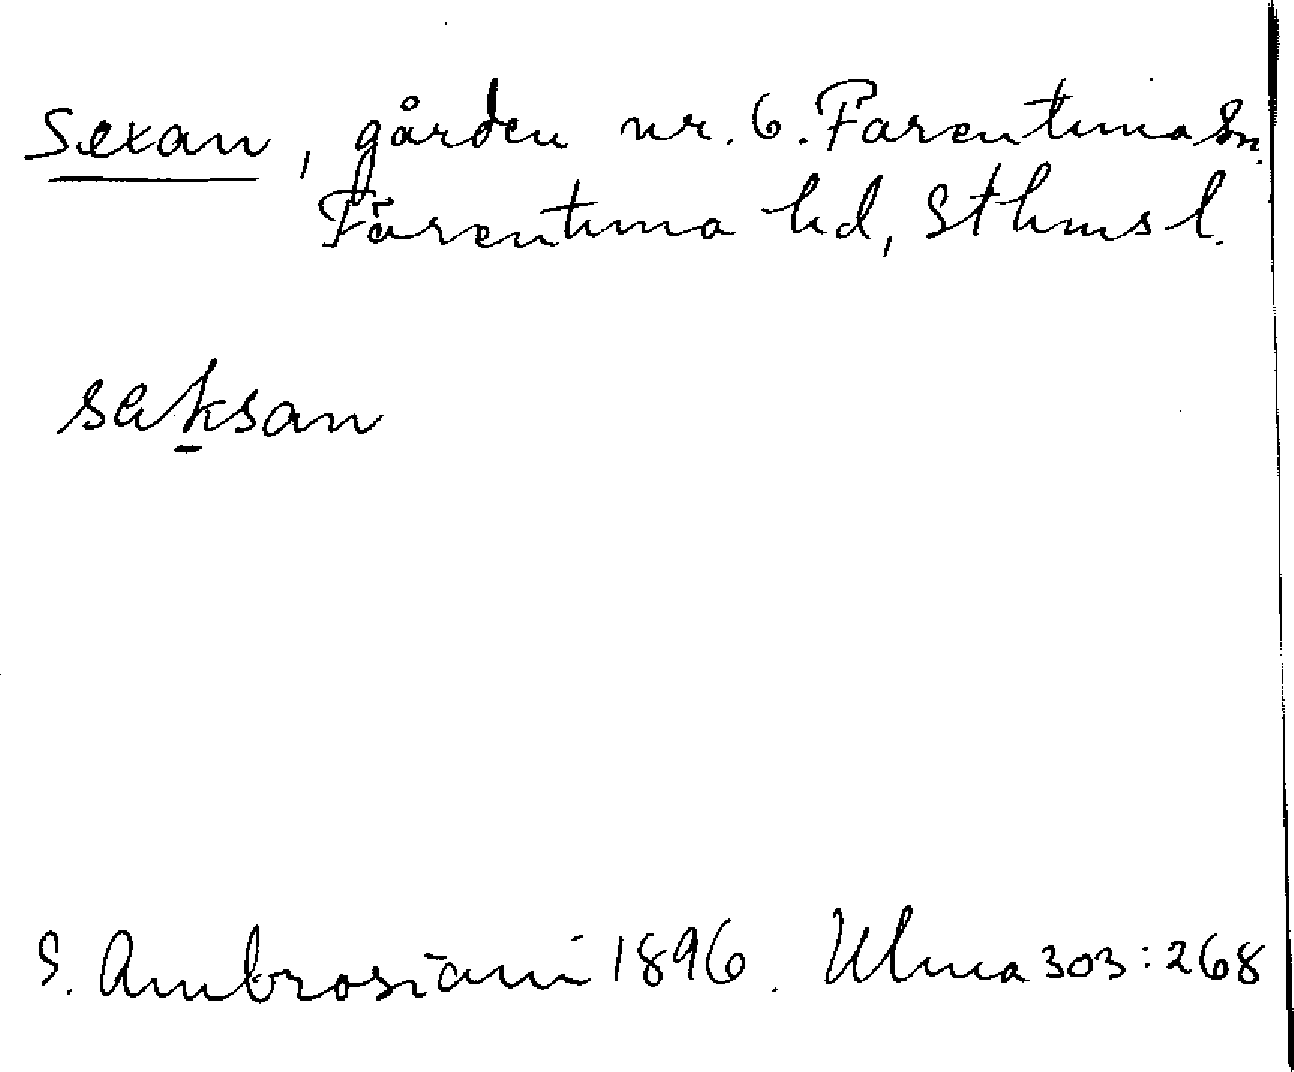 Sexan, gården nr. 6. Farentuna Sn.
Färentuna hd, Sthms l.
saksan
S. Ambrosiani 1896. Ulma 303:268